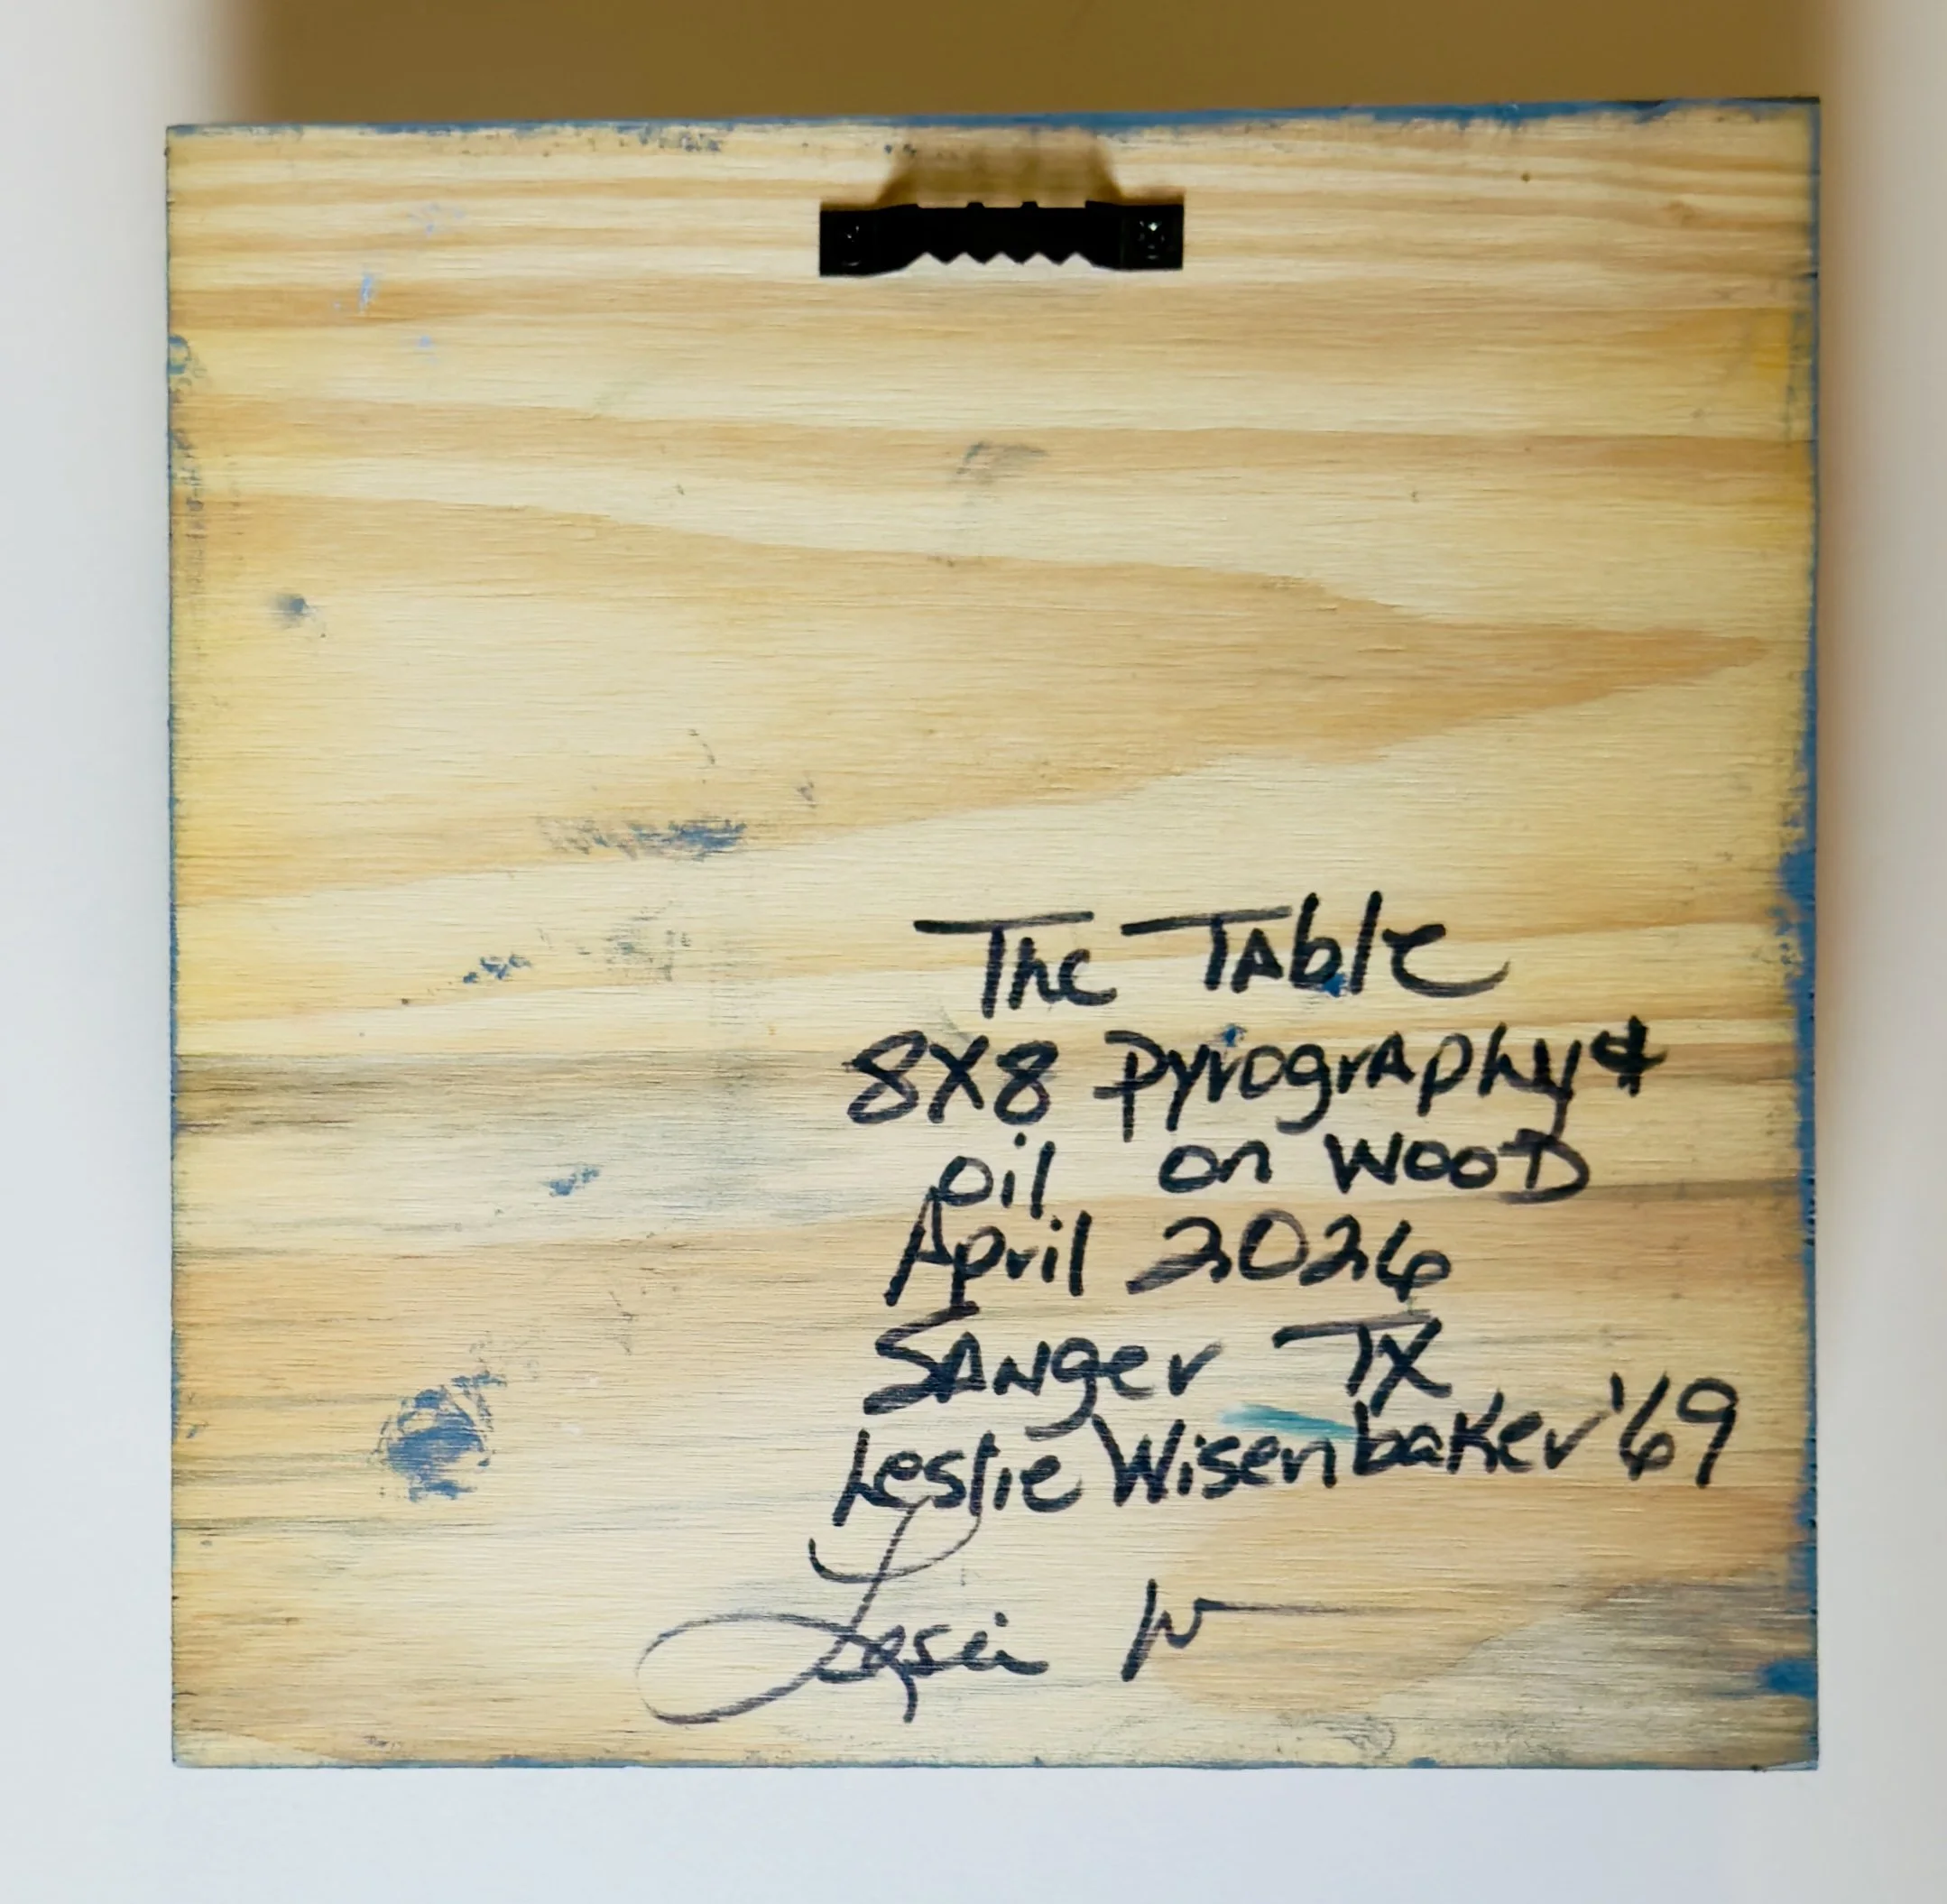 The Table
8x8 pyrography &
oil on wood
April 2026
Sanger TX
Leslie Wisenbaker '69
Leslie W